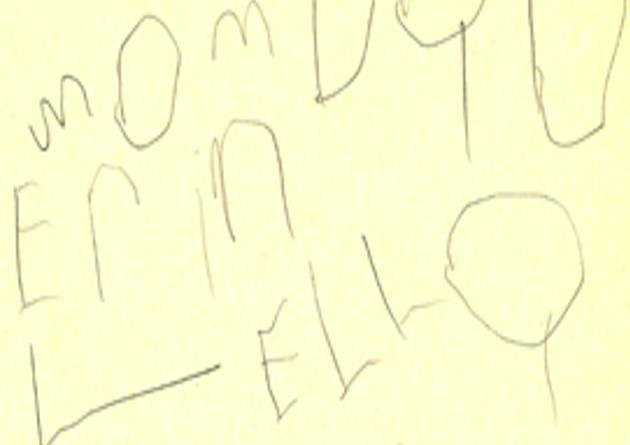 mom DaD
Erin
LELLa